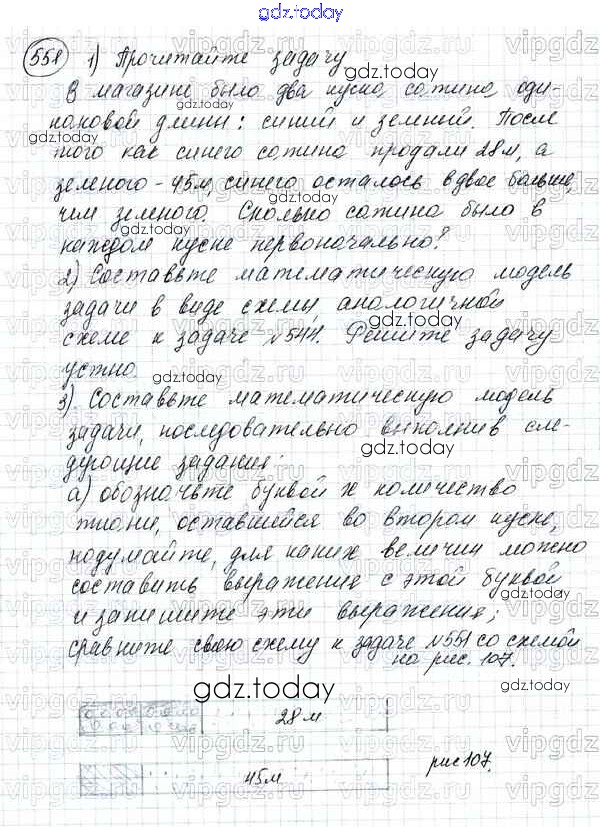 gdz.today
551 1) Прочитайте задачу
В магазине было два куска сатина оди-
наковой длины: синий и зеленый. После
того как синего сатина продали 28м, а
зеленого - 45м, синего осталось вдвое больше,
чем зеленого. Сколько сатина было в
каждом куске первоначально?
2) Составьте математическую модель
задачи в виде схемы, аналогичной
схеме к задаче №544. Решите задачу
устно.
3) Составьте математическую модель
задачи, последовательно выполнив сле-
дующие задания:
а) обозначьте буквой х количество
ткани, оставшейся во втором куске,
подумайте, для каких величин можно
составить выражения с этой буквой
и запишите эти выражения;
сравните свою схему к задаче №551 со схемой
на рис. 107.
gdz.today
28м
45м
рис 107.